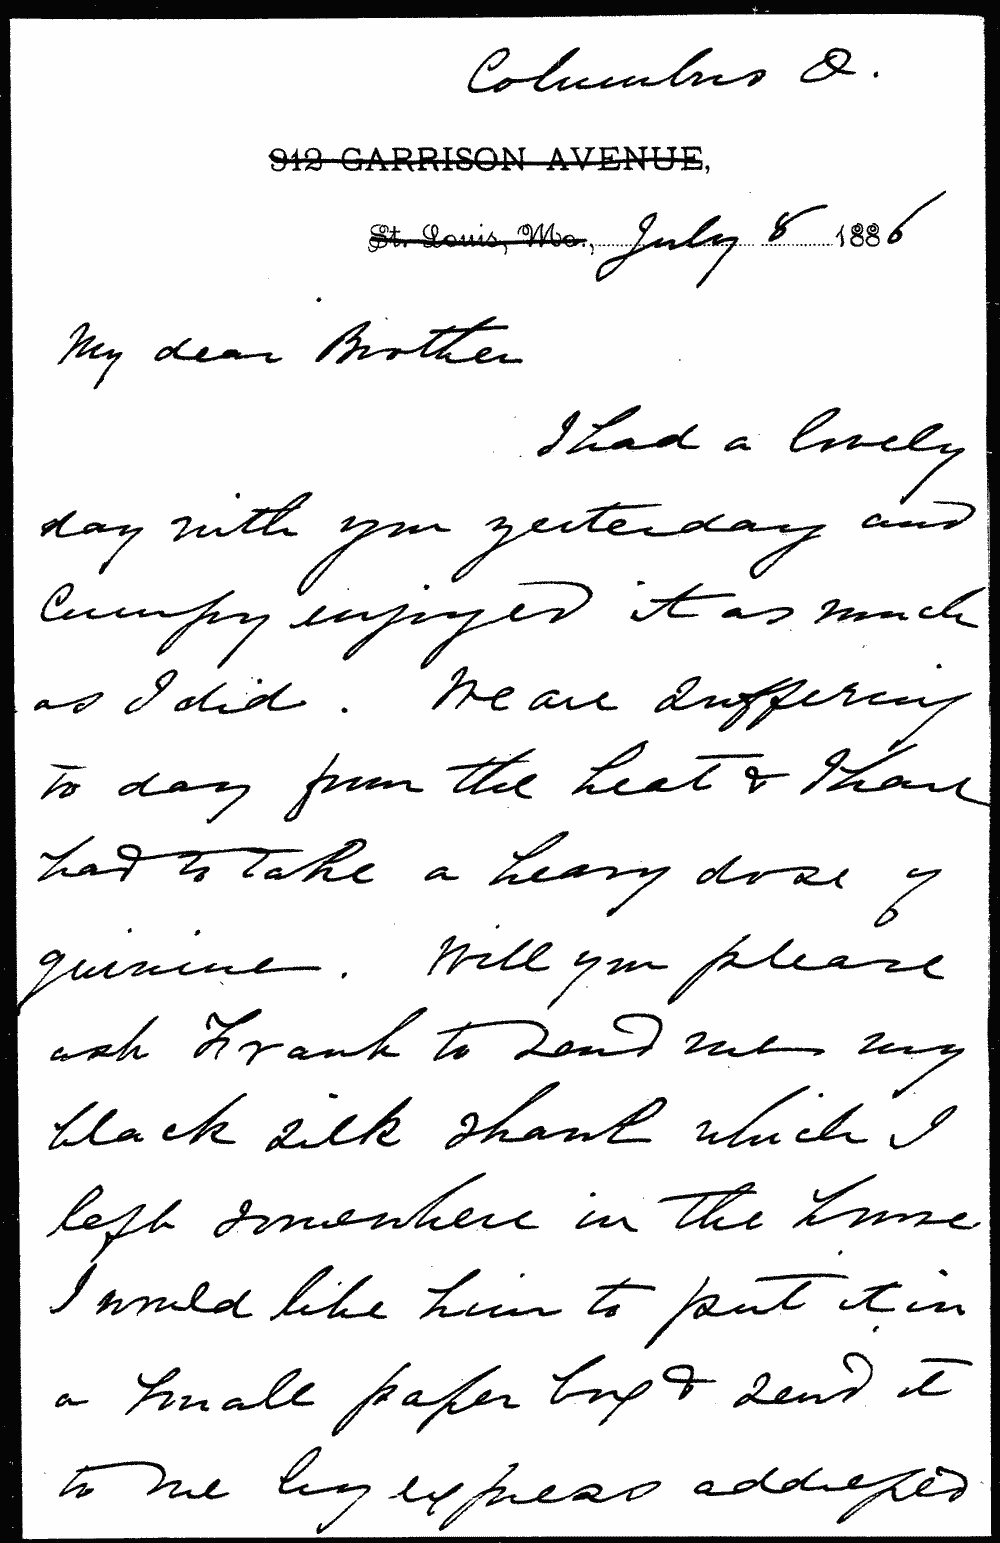 Columbus O.
912 GARRISON AVENUE,
St. Louis, Mo., July 8 1886
My dear Brother
I had a lovely
day with you yesterday and
Cumpy enjoyed it as much
as I did. We are suffering
to day from the heat & I have
had to take a heavy dose of
quinine. Will you please
ask Frank to send me my
black silk shawl which I
left somewhere in the house
I would like him to put it in
a small paper box & send it
to me by express addressed